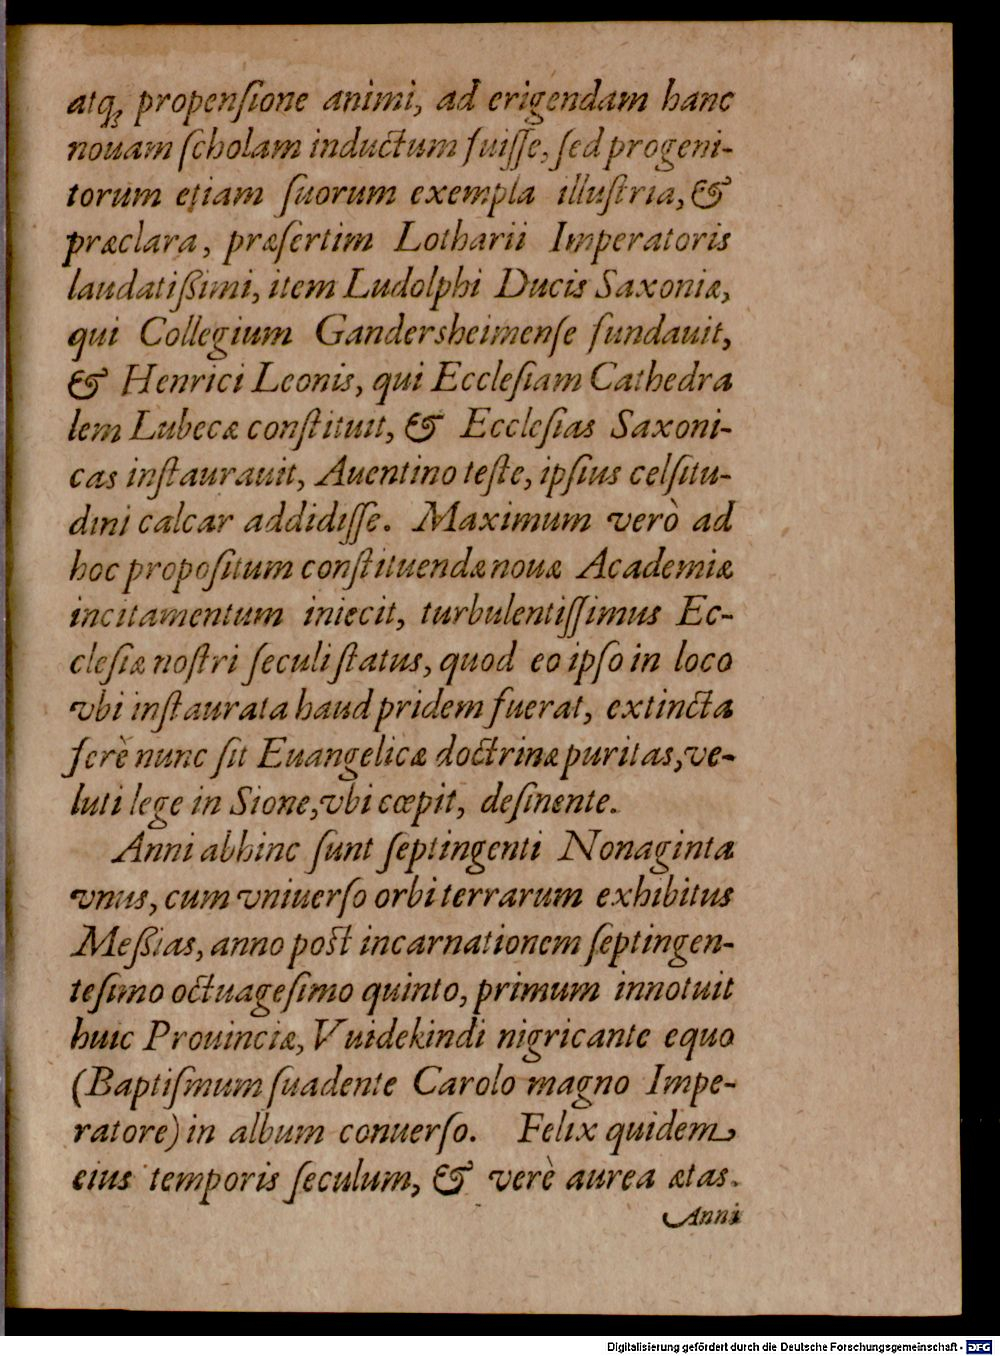 atq́ꝫ propenſione animi, ad erigendam hanc
nouam ſcholam inductum fuiſſe, ſed progeni-
torum etiam ſuorum exempla illuſtria, &
præclara, præſertim Lotharii Imperatoris
laudatißimi, item Ludolphi Ducis Saxoniæ,
qui Collegium Gandersheimenſe fundauit,
& Henrici Leonis, qui Eccleſiam Cathedra
lem Lubecæ conſtituit, & Eccleſias Saxoni-
cas inſtaurauit, Auentino teſte, ipſius celſitu-
dini calcar addidiſſe. Maximum verò ad
hoc propoſitum conſtituendæ nouæ Academiæ
incitamentum iniecit, turbulentiſſimus Ec-
cleſiæ noſtri ſeculi ſtatus, quod eo ipſo in loco
vbi inſtaurata haud pridem fuerat, extincta
ferè nunc ſit Euangelicæ doctrinæ puritas, ve-
luti lege in Sione, vbi cœpit, deſinente.
Anni abhinc ſunt ſeptingenti Nonaginta
vnus, cum vniuerſo orbi terrarum exhibitus
Meßias, anno poſt incarnationem ſeptingen-
teſimo octuageſimo quinto, primum innotuit
huic Prouinciæ, Vuidekindi nigricante equo
(Baptiſmum ſuadente Carolo magno Impe-
ratore) in album conuerſo. Felix quidem
eius temporis ſeculum, & verè aurea ætas.
Anni
Digitalisierung gefördert durch die Deutsche Forschungsgemeinschaft - DFG